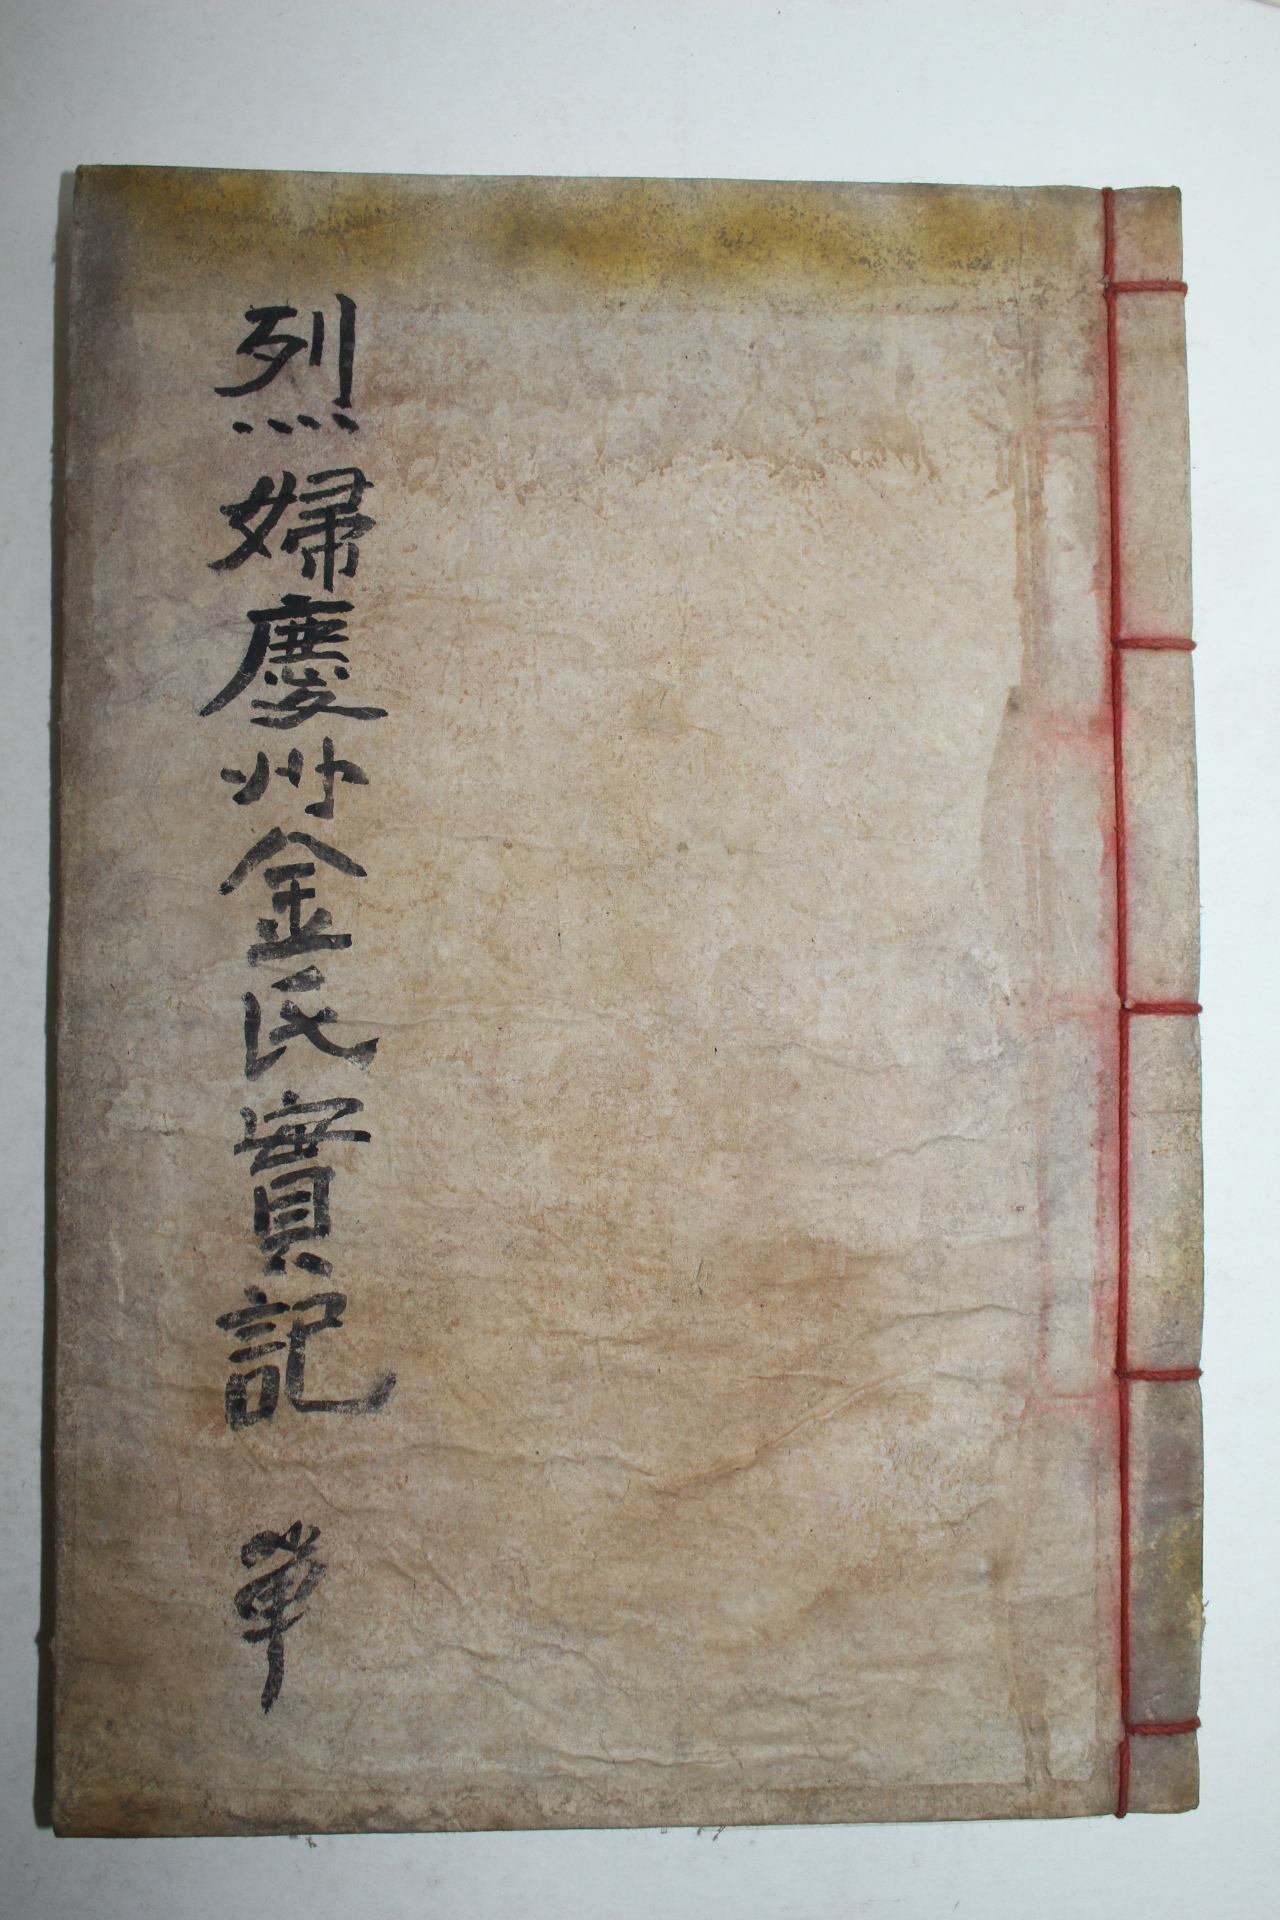 烈婦慶州金氏實記 單